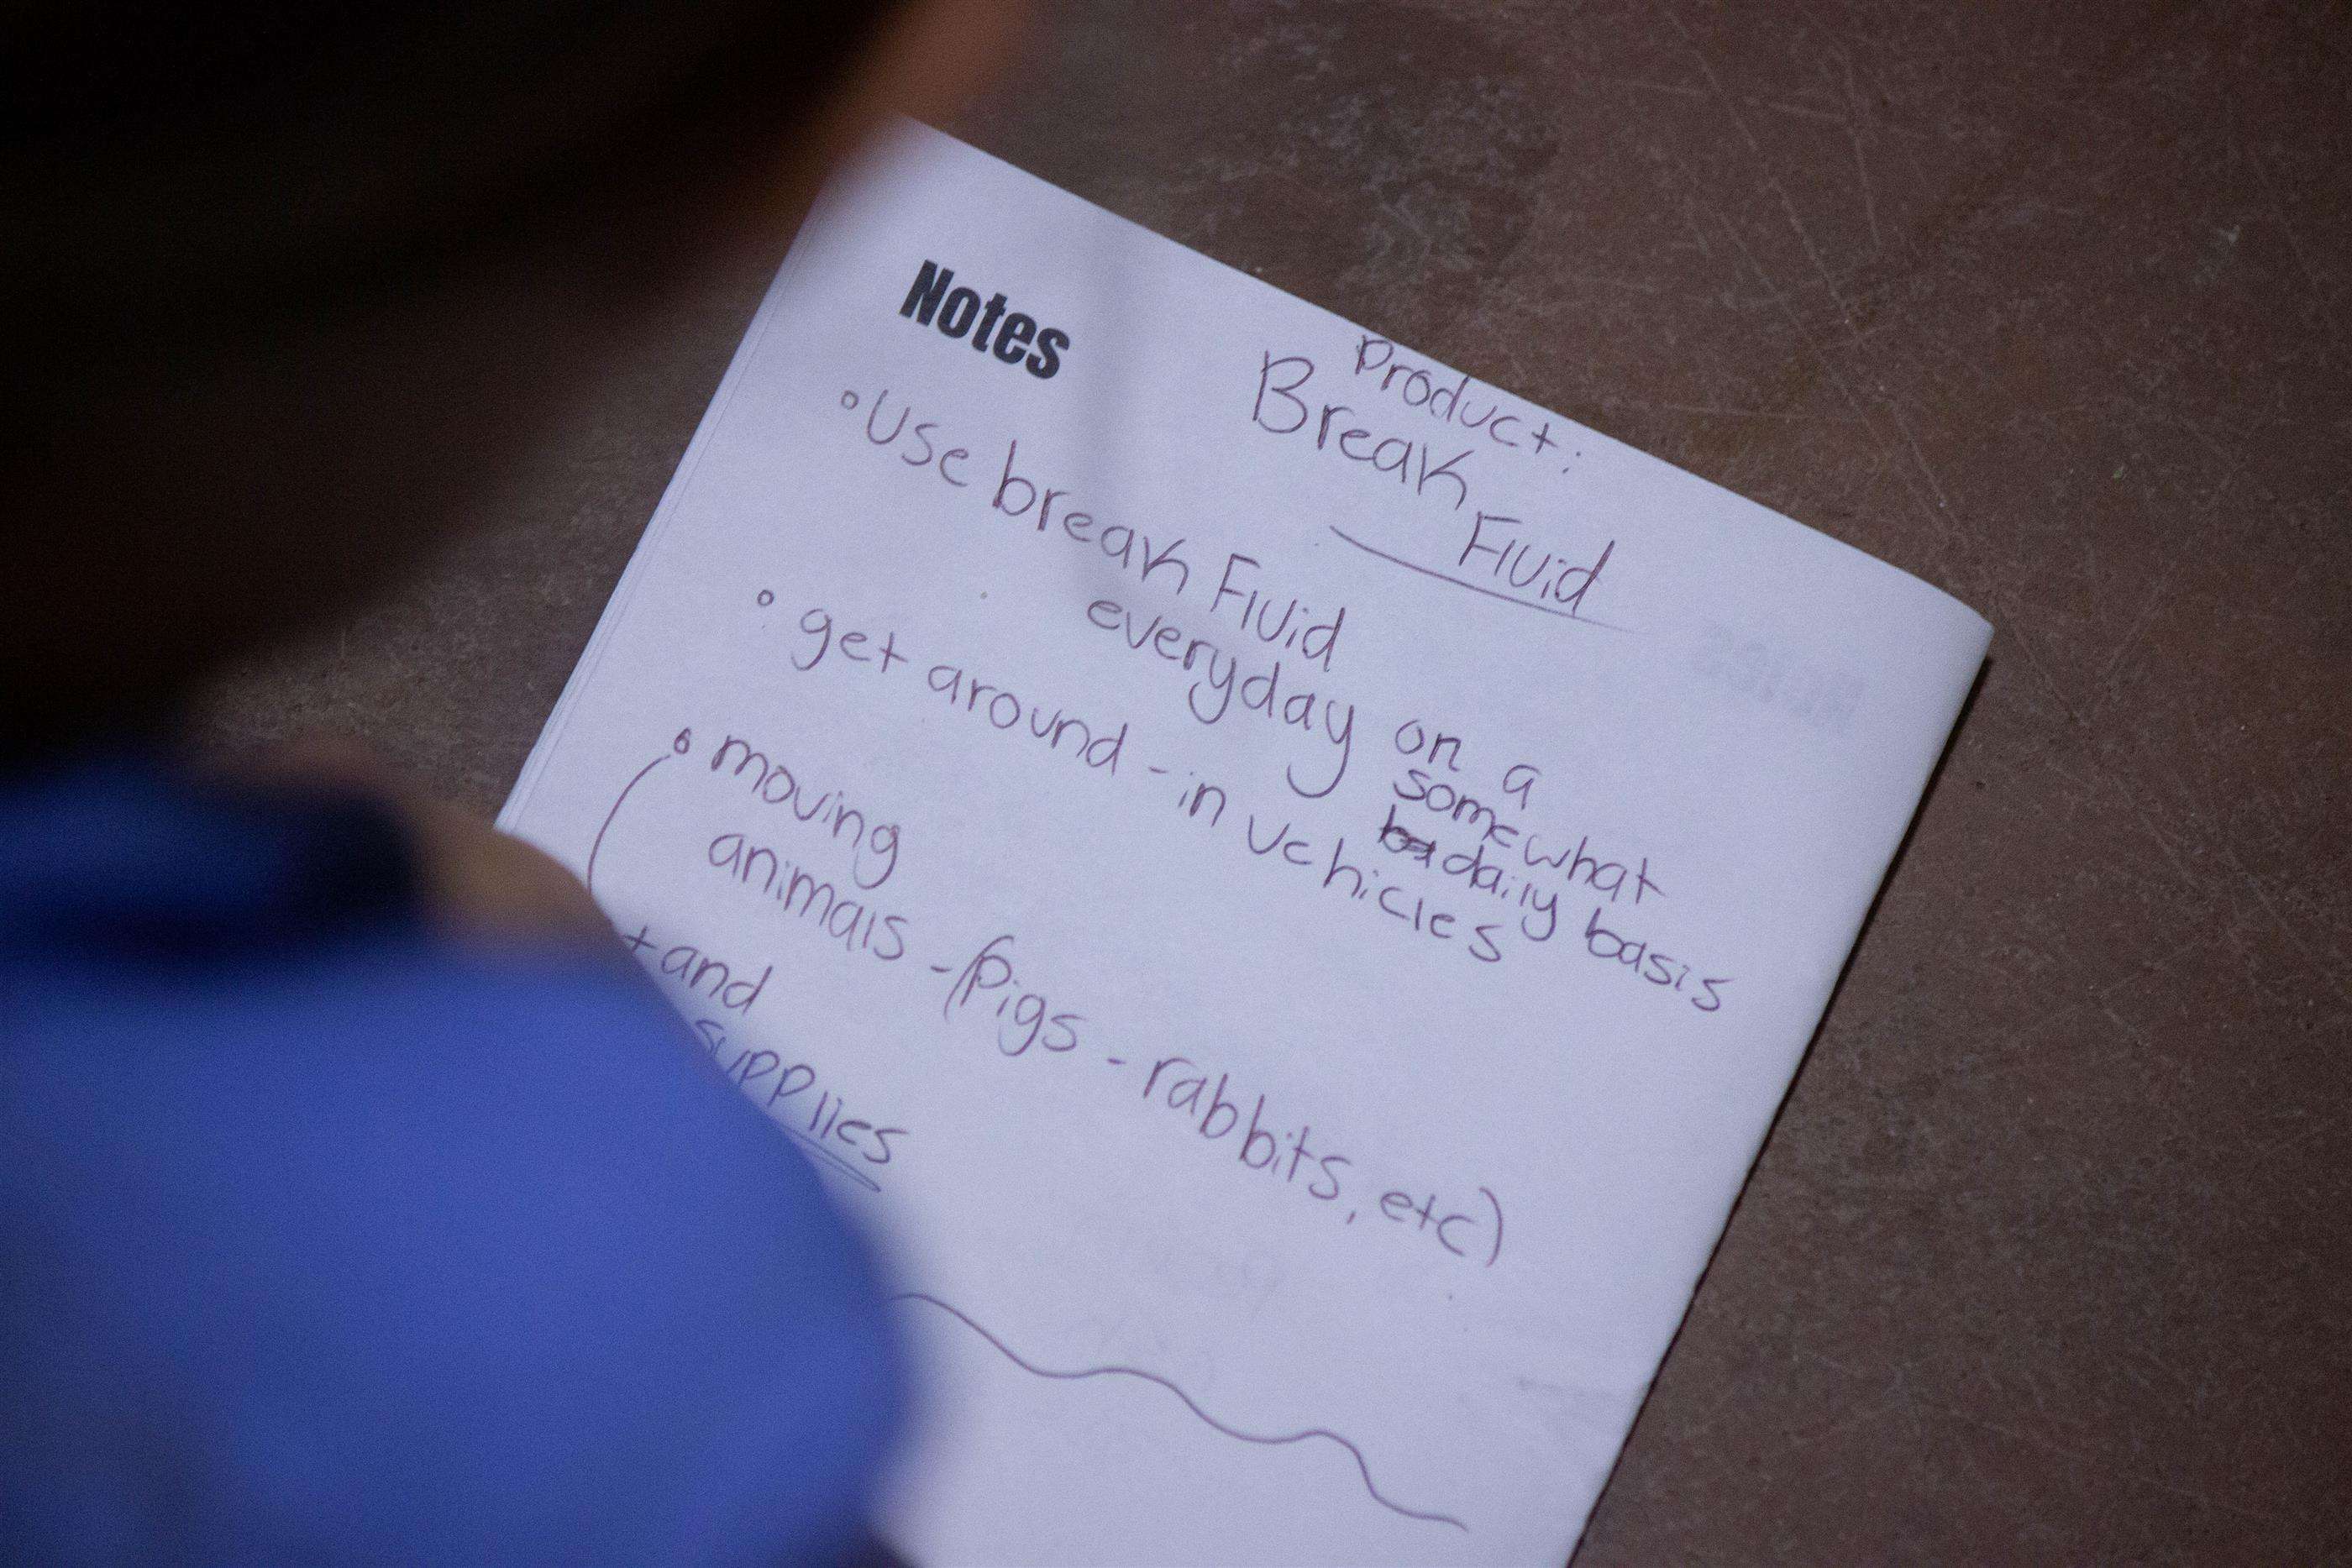 Product:
Break
Fluid
Notes
• Use break Fluid
everyday on a
somewhat
daily basis
• get around - in vehicles
• moving
animals - (pigs - rabbits, etc)
+ and
supplies